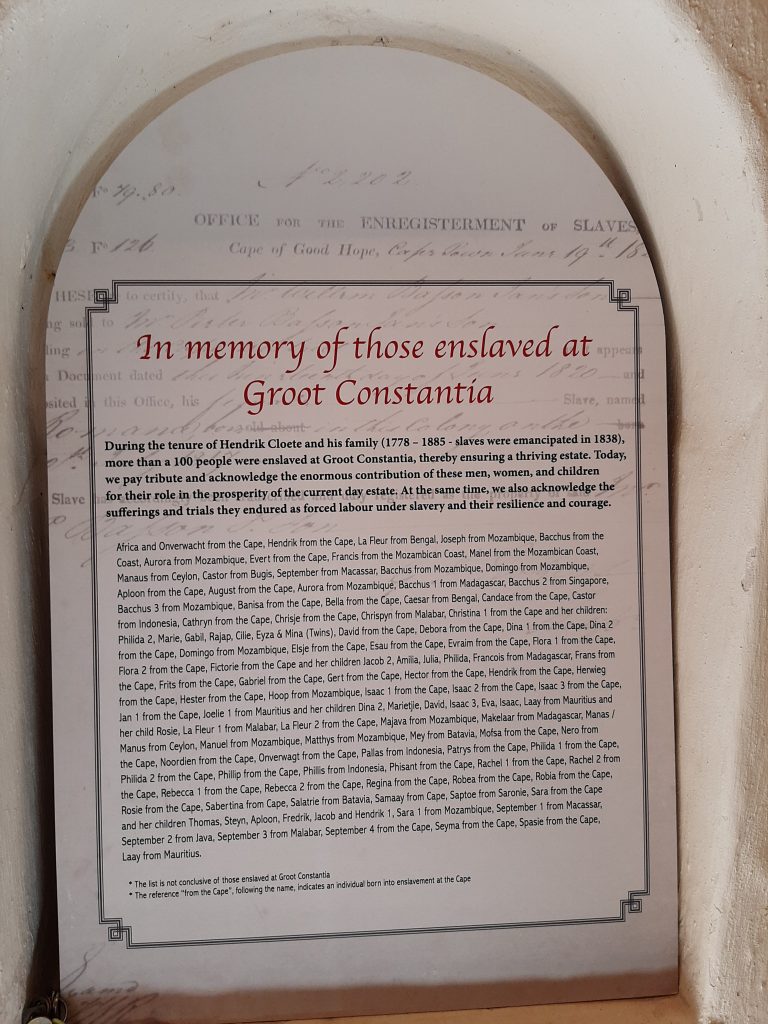 Fo 79.80.
No 2,202
OFFICE FOR THE ENREGISTERMENT OF SLAVES
Fo 126
Cape of Good Hope, Cape Town June 19th 18
HESE to certify, that Mr William
ng sold to Mr
ling appears
Document dated the day of June 1820 and
sited in this Office, his Slave, named
sold about in this Colony on the
In memory of those enslaved at
Groot Constantia
During the tenure of Hendrik Cloete and his family (1778 – 1885 - slaves were emancipated in 1838),
more than a 100 people were enslaved at Groot Constantia, thereby ensuring a thriving estate. Today,
we pay tribute and acknowledge the enormous contribution of these men, women, and children
Slave
for their role in the prosperity of the current day estate. At the same time, we also acknowledge the
sufferings and trials they endured as forced labour under slavery and their resilience and courage.
Africa and Onverwacht from the Cape, Hendrik from the Cape, La Fleur from Bengal, Joseph from Mozambique, Bacchus from the
Coast, Aurora from Mozambique, Evert from the Cape, Francis from the Mozambican Coast, Manel from the Mozambican Coast,
Manaus from Ceylon, Castor from Bugis, September from Macassar, Bacchus from Mozambique, Domingo from Mozambique,
Aploon from the Cape, August from the Cape, Aurora from Mozambique, Bacchus 1 from Madagascar, Bacchus 2 from Singapore,
Bacchus 3 from Mozambique, Banisa from the Cape, Bella from the Cape, Caesar from Bengal, Candace from the Cape, Castor
from Indonesia, Cathryn from the Cape, Chrisje from the Cape, Chrispyn from Malabar, Christina 1 from the Cape and her children:
Philida 2, Marie, Gabil, Rajap, Cilie, Eyza & Mina (Twins), David from the Cape, Debora from the Cape, Dina 1 from the Cape, Dina 2
from the Cape, Domingo from Mozambique, Elsje from the Cape, Esau from the Cape, Evraim from the Cape, Flora 1 from the Cape,
Flora 2 from the Cape, Fictorie from the Cape and her children Jacob 2, Amilia, Julia, Philida, Francois from Madagascar, Frans from
the Cape, Frits from the Cape, Gabriel from the Cape, Gert from the Cape, Hector from the Cape, Hendrik from the Cape, Herwieg
from the Cape, Hester from the Cape, Hoop from Mozambique, Isaac 1 from the Cape, Isaac 2 from the Cape, Isaac 3 from the Cape,
Jan 1 from the Cape, Joelie 1 from Mauritius and her children Dina 2, Marietjie, David, Isaac 3, Eva, Isaac, Laay from Mauritius and
her child Rosie, La Fleur 1 from Malabar, La Fleur 2 from the Cape, Majava from Mozambique, Makelaar from Madagascar, Manas /
Manus from Ceylon, Manuel from Mozambique, Matthys from Mozambique, Mey from Batavia, Mofsa from the Cape, Nero from
the Cape, Noordien from the Cape, Onverwagt from the Cape, Pallas from Indonesia, Patrys from the Cape, Philida 1 from the Cape,
Philida 2 from the Cape, Phillip from the Cape, Phillis from Indonesia, Phisant from the Cape, Rachel 1 from the Cape, Rachel 2 from
the Cape, Rebecca 1 from the Cape, Rebecca 2 from the Cape, Regina from the Cape, Robea from the Cape, Robia from the Cape,
Rosie from the Cape, Sabertina from Cape, Salatrie from Batavia, Samaay from Cape, Saptoe from Saronie, Sara from the Cape
and her children Thomas, Steyn, Aploon, Fredrik, Jacob and Hendrik 1, Sara 1 from Mozambique, September 1 from Macassar,
September 2 from Java, September 3 from Malabar, September 4 from the Cape, Seyma from the Cape, Spasie from the Cape,
Laay from Mauritius.
* The list is not conclusive of those enslaved at Groot Constantia
* The reference "from the Cape", following the name, indicates an individual born into enslavement at the Cape